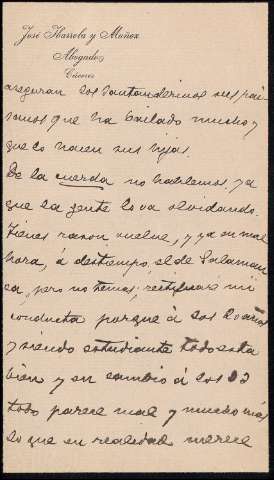 José Ibarrola y Muñoz
Abogados
Cáceres
aseguran los santanderinos sus pai
sanos que ha bailado mucho y
que lo hacen sus hijas.
De la cuerda no hablemos, ya
que la gente lo va olvidando.
Tienes razon, vuelve, y ya en mal
hora, á destiempo, el de Salaman
ca, pero no temas; rectificaré mi
conducta porque á los 20 años
y siendo estudiante todo esta
bien y en cambio á los 23
todo parece mal y mucho más
lo que en realidad merece